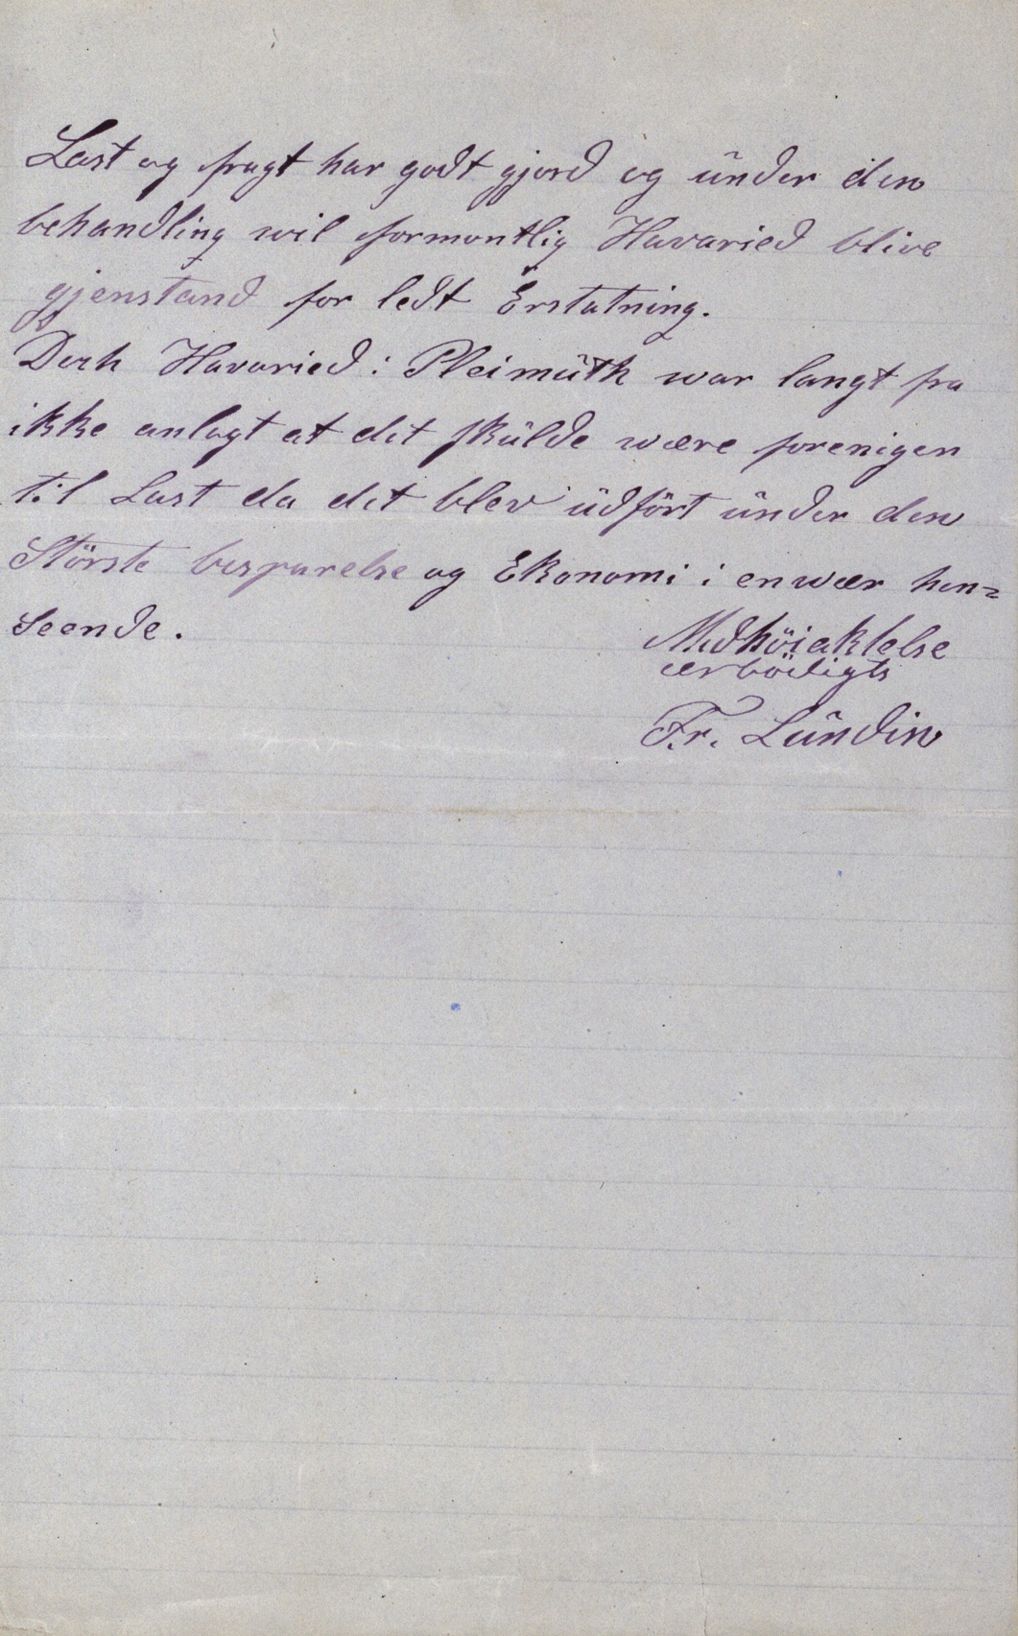 Last og fragt har godt gjord og ûnder den
behandling wil formontlig Havaried blive
gjenstand for ledt Erstatning.
Derh Havaried i Pleimûth war langt fra
ikke anlagt at det skûlde wære forenigen
til Last da det blev ûdfört ûnder den
Störste besparelse og Ekonomi i enwær hen=
seende.
Medhöiaktelse
ærbödigts
Fr. Lûndin